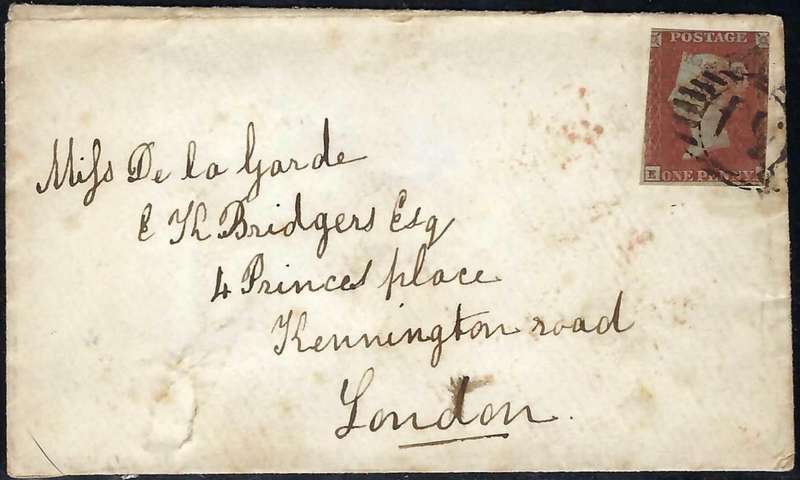 POSTAGE
E ONE PENNY
Miſs De la Garde
E K Bridgers Esq
4 Princes place
Kennington road
London.